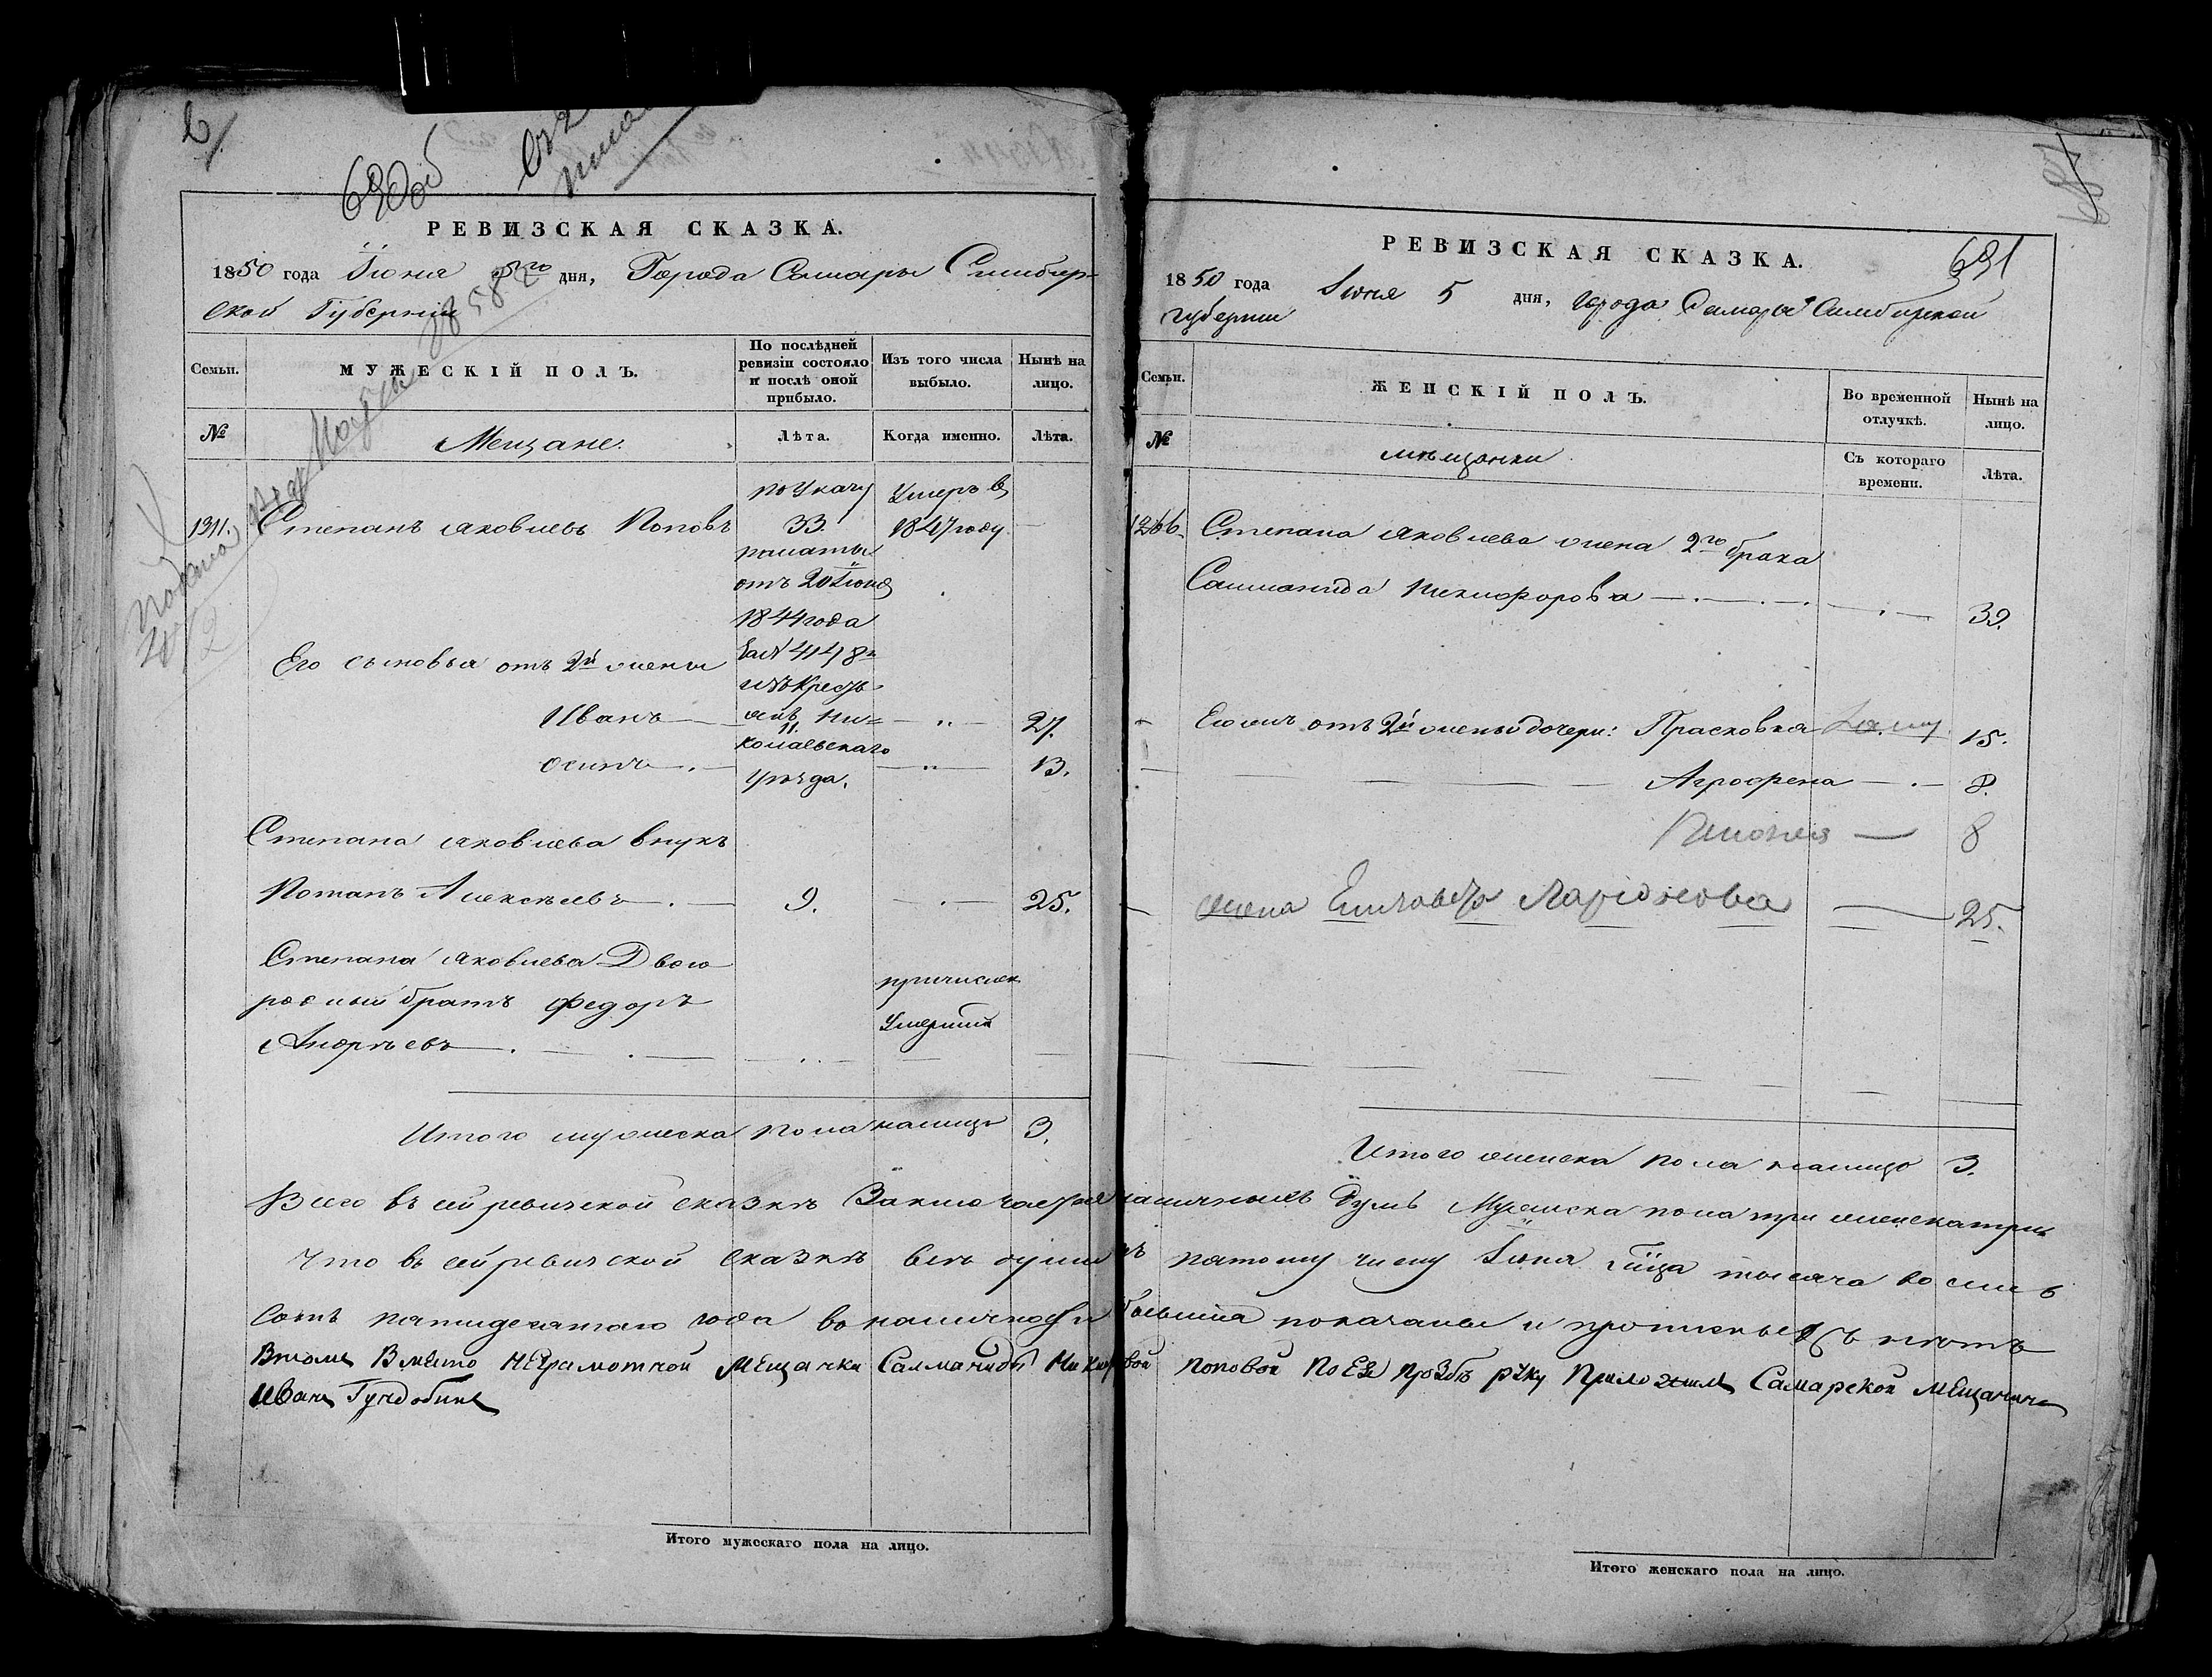 690об
РЕВИЗСКАЯ СКАЗКА.
1850 года Іюня 5го дня, Города Самары Симбир-
ской Губерніи
Семьи.
МУЖЕСКІЙ ПОЛЪ.
По послѣдней ревизіи состояло и послѣ оной прибыло.
Изъ того числа выбыло.
Нынѣ на лицо.
№
Мещане.
Лѣта.
Когда именно.
Лѣта.
1311. Степанъ Яковлевъ Поповъ
по Указу
33.
палаты
отъ 20 Іюня
1844 года
за № 4148м
изъ Кресть
янъ Ни=
колаевскаго
уѣзда.
Умеръ в
1847 году
Его сыновья отъ 2й жены
Иванъ 27.
Осипъ 13.
Степана Яковлева внукъ
Потапъ Алексѣевъ 9. 25.
Степана Яковлева Двою
родный братъ Федоръ
Андреѣевъ
причислен
Умершим
Итого мужеска пола налицо 3.
РЕВИЗСКАЯ СКАЗКА.
691
1850 года Іюня 5 дня, города Самары Симбирской
губернии
Семьи.
ЖЕНСКІЙ ПОЛЪ.
Во временной отлучкѣ.
Нынѣ на лицо.
№
мѣщанки
Съ котораго времени.
Лѣта.
1266. Степана Яковлева жена 2го брака
Саламанида Никифорова 39.
Его ж отъ 2й жены дочери: Прасковья зам. 15.
Агрофена 8.
8
жена Елизавета Ларіонова 25.
Итого женска пола налицо 3.
Всего въ сей ревизской сказкѣ Заключается наличныхъ душъ Мужеска пола три женска три
Что въ сей ревизской сказкѣ всѣ души къ пятому числу Іюня мца тысяча восемь
сотъ пятидесятаго года во наличности бывшія показаны и прописныхъ нѣтъ
Втомъ Вместо неграмотной мещанки Саламаниды Никифоровой поповой по Ее прозбѣ руку Приложилъ Самарской мещанинъ
Иванъ Гундобинъ
Итого мужескаго пола на лицо.
Итого женскаго пола на лицо.